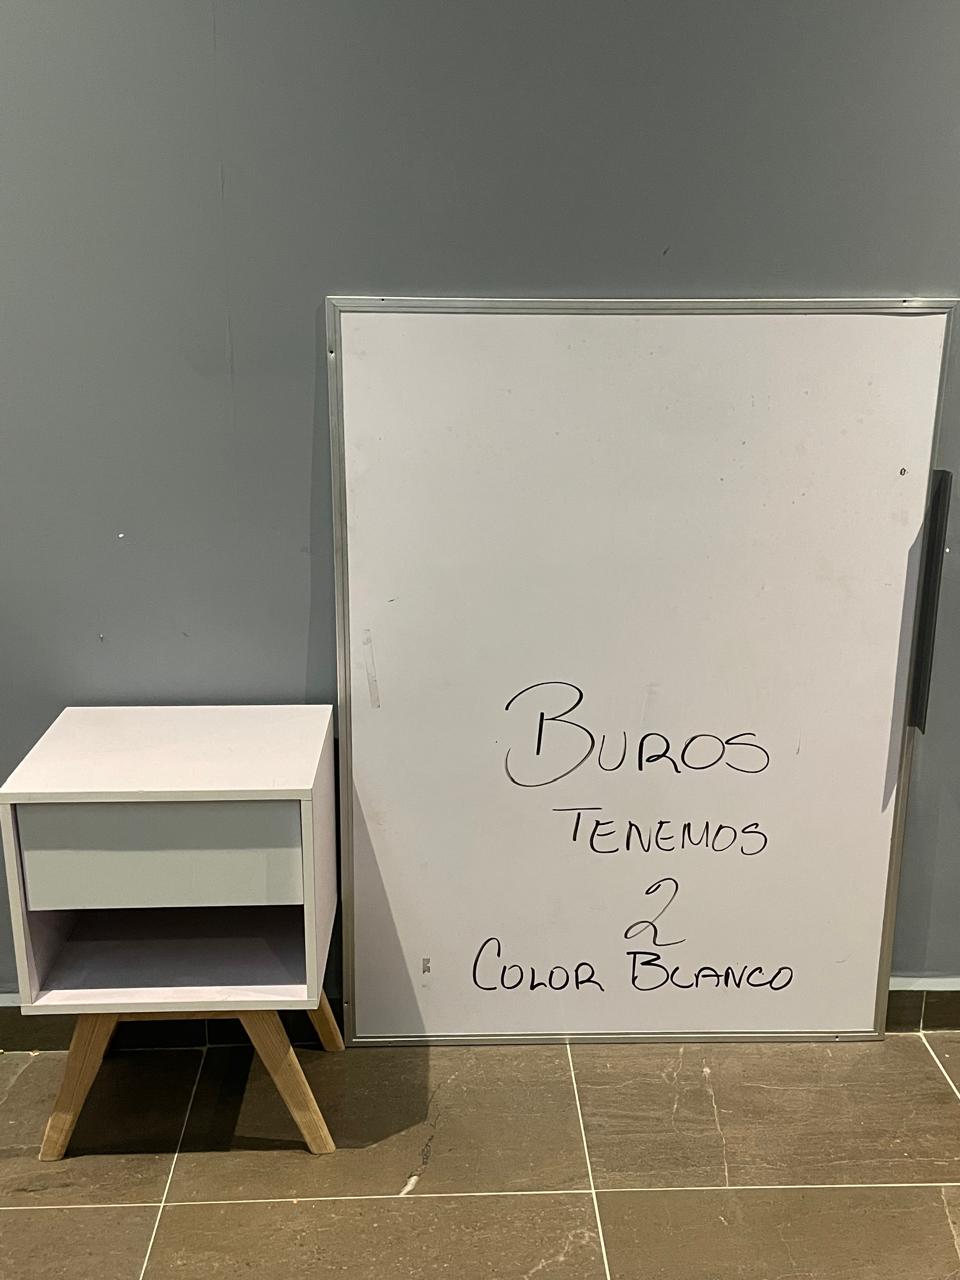 BUROS
TENEMOS
2
COLOR BLANCO